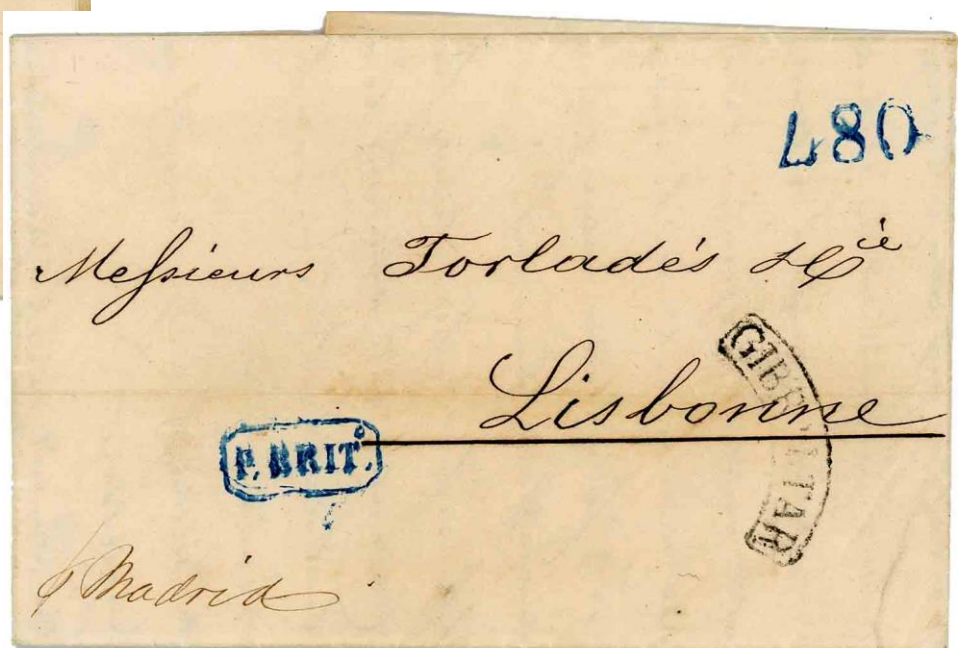 480
Messieurs Torladés & Cie
Lisbonne
GIBRALTAR
P. BRIT.º
p Madrid